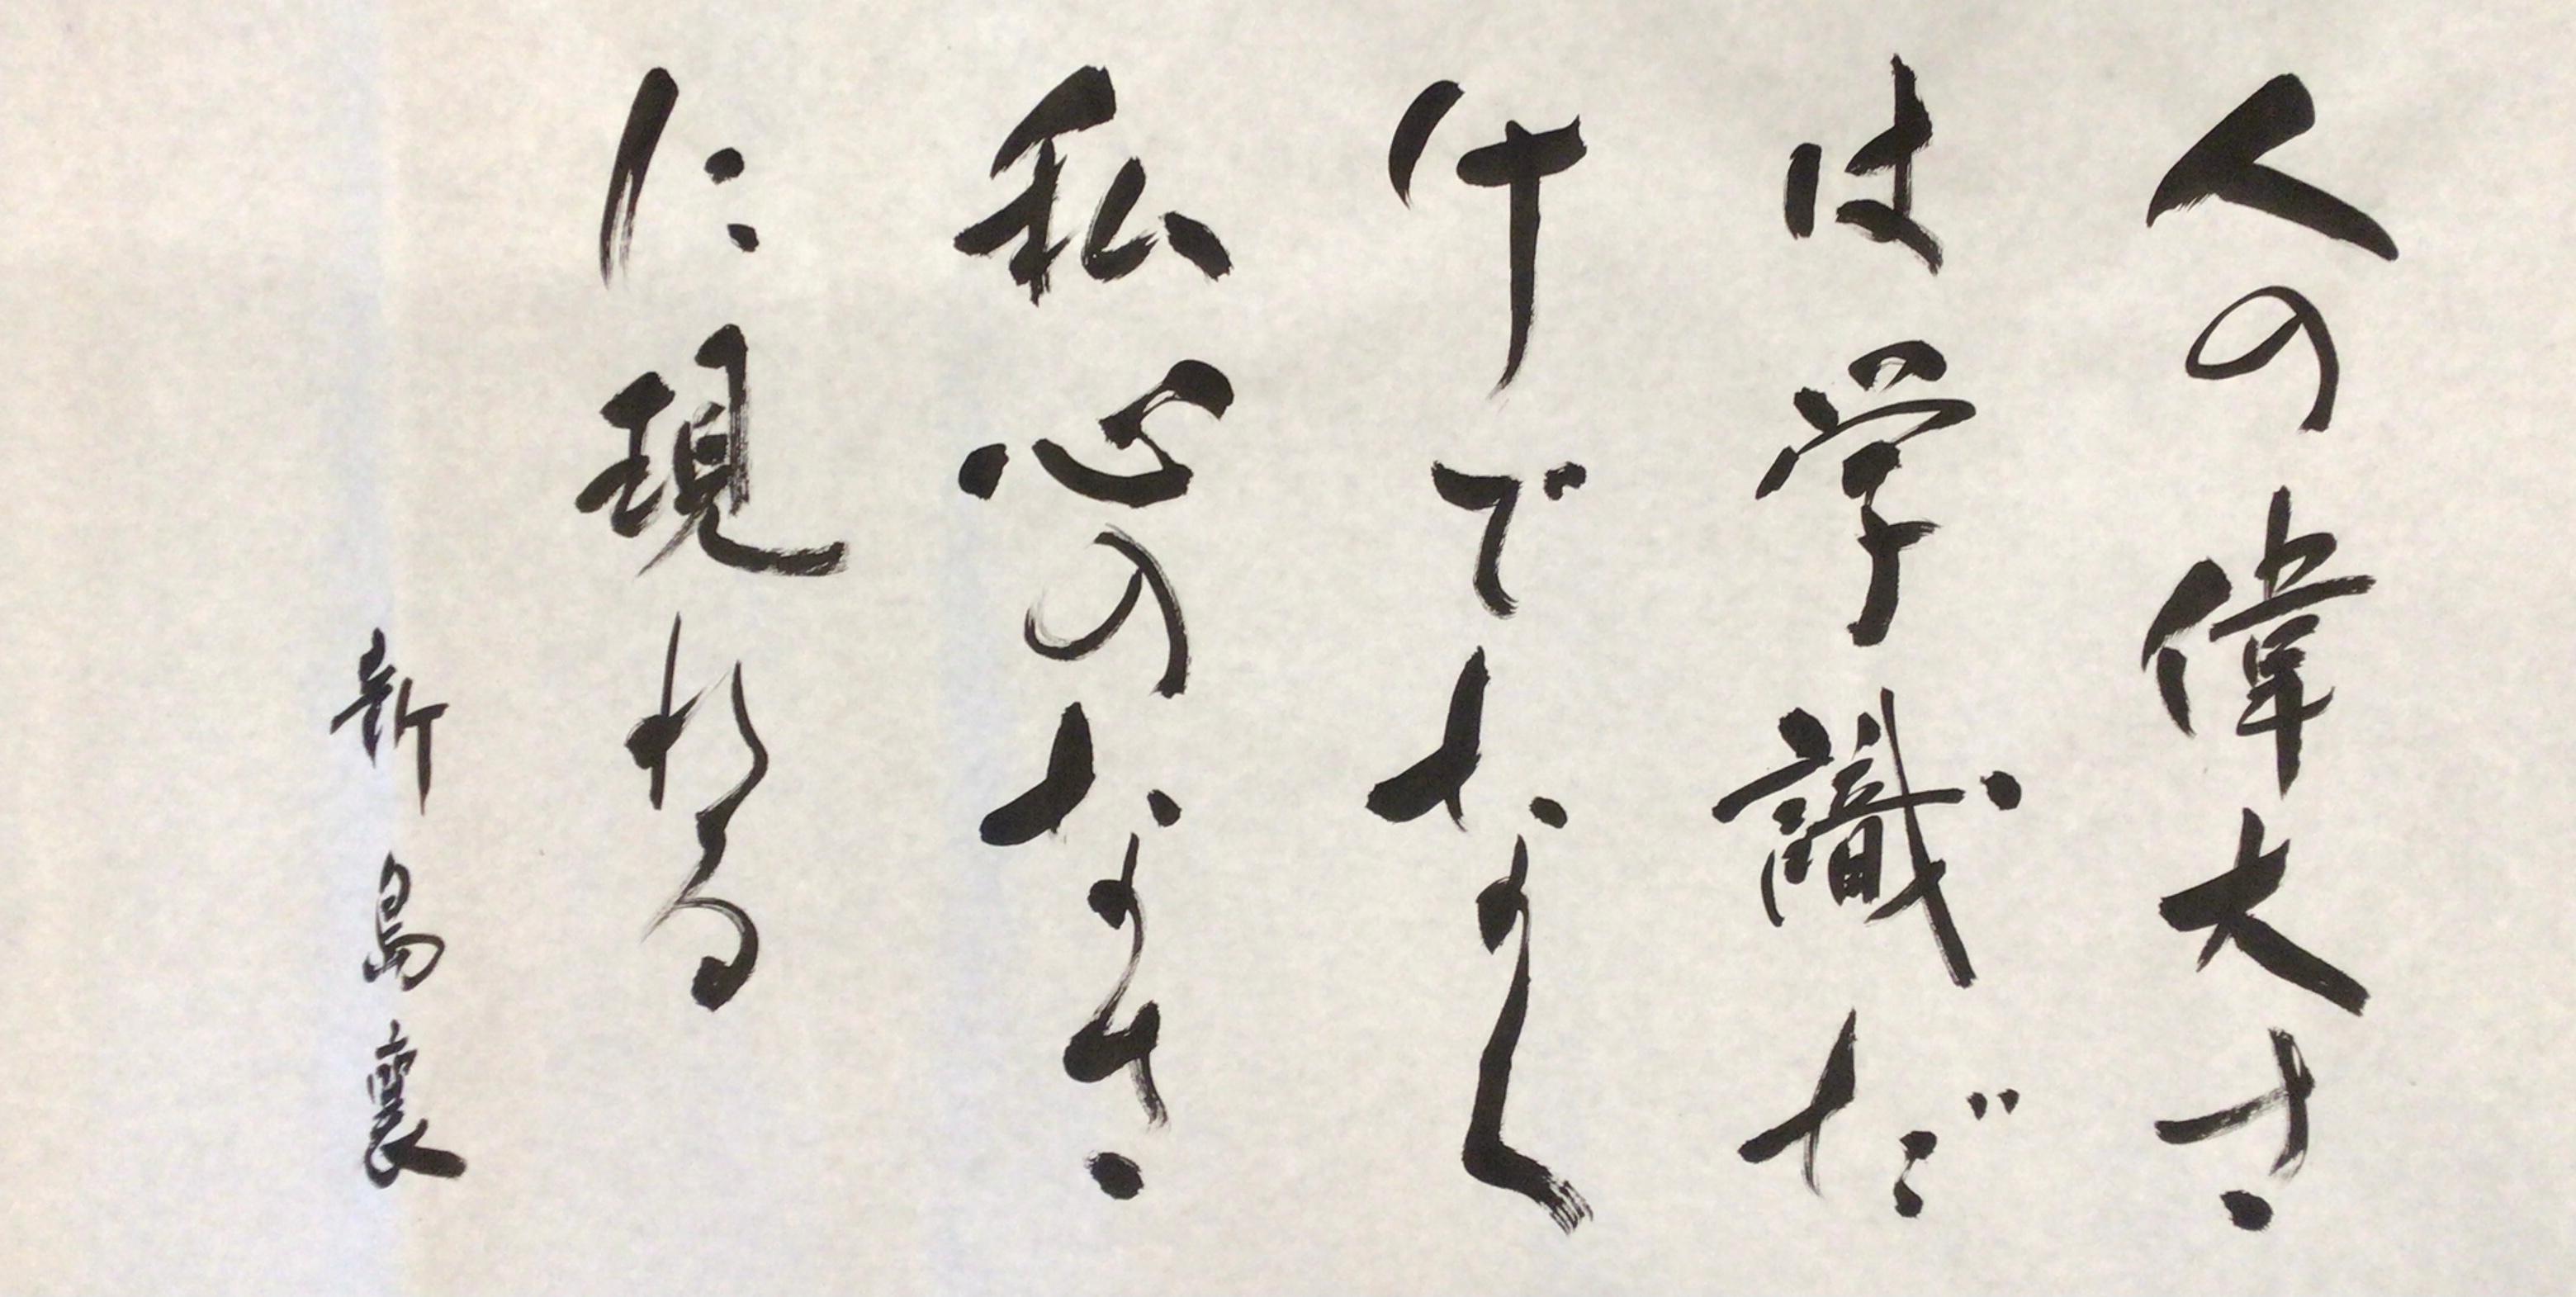 人の偉大さ
は学識だ
けでなく
私心のなさ
に現れる
新島襄